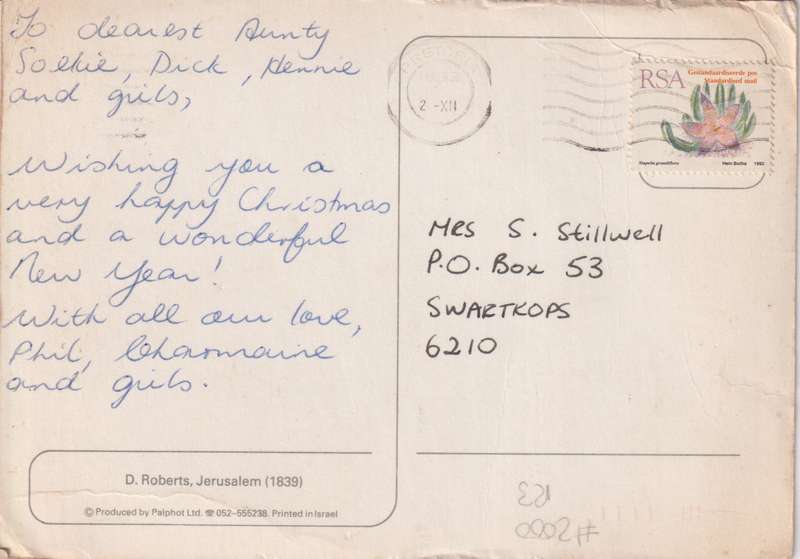 To dearest Aunty
Soekie, Dick, Hennie
and girls,
Wishing you a
very happy Christmas
and a wonderful
New Year!
With all our love,
Phil, Charmaine
and girls.
D. Roberts, Jerusalem (1839)
© Produced by Palphot Ltd. ☎ 052-555238. Printed in Israel
2 -XII
RSA
Gestandaardiseerde pos
Standardised mail
Stapelia grandiflora
Hein Botha 1992
Mrs S. Stillwell
P.O. Box 53
SWARTKOPS
6210